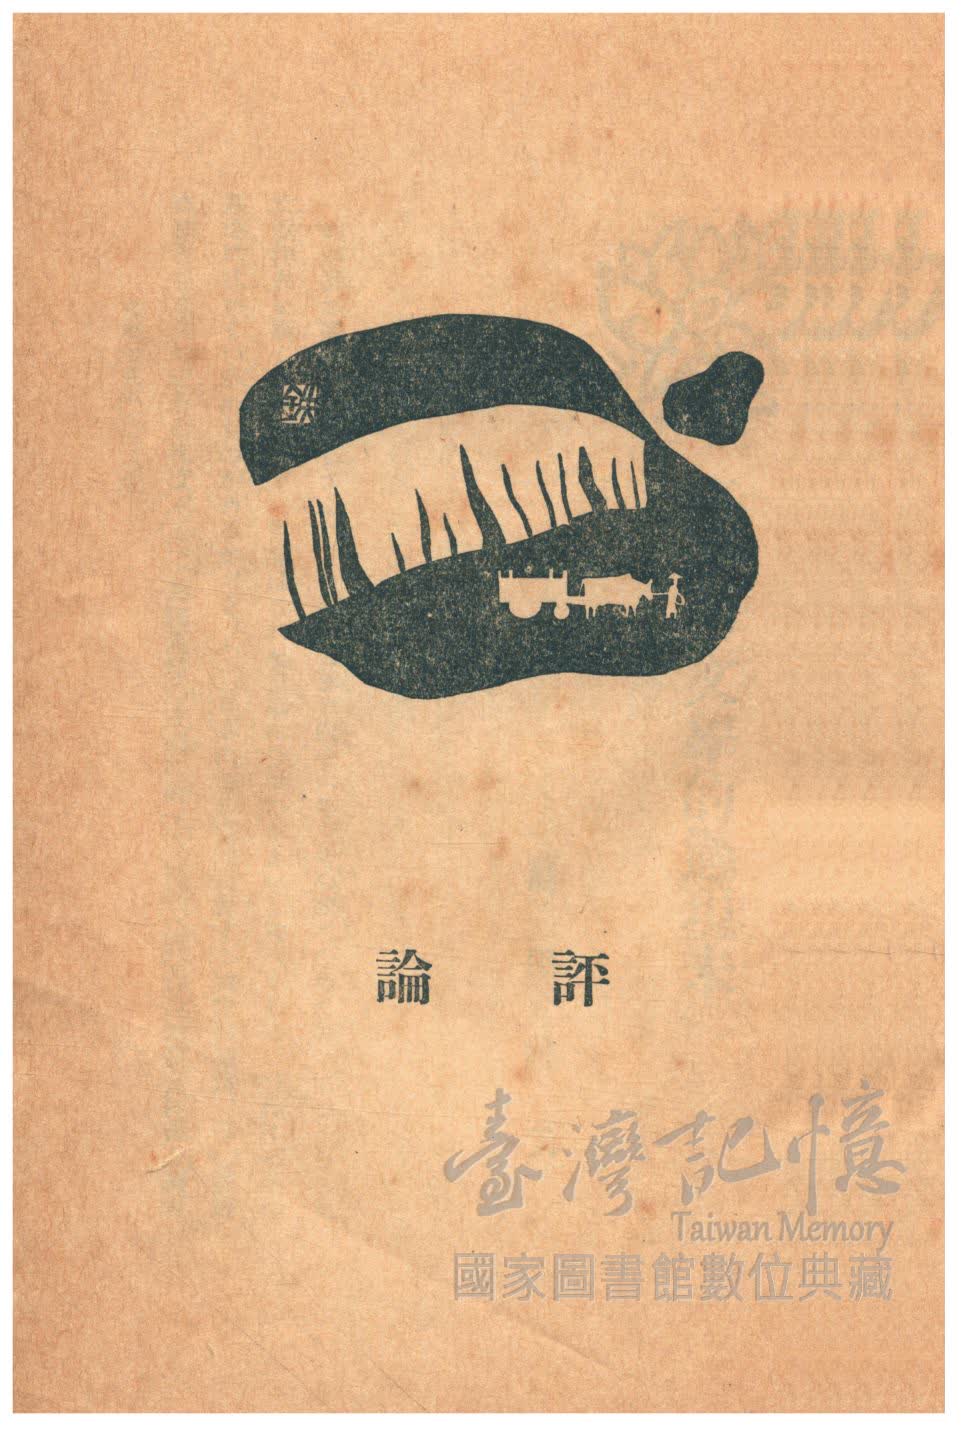 鉄
評論
臺灣記憶
Taiwan Memory
國家圖書館數位典藏